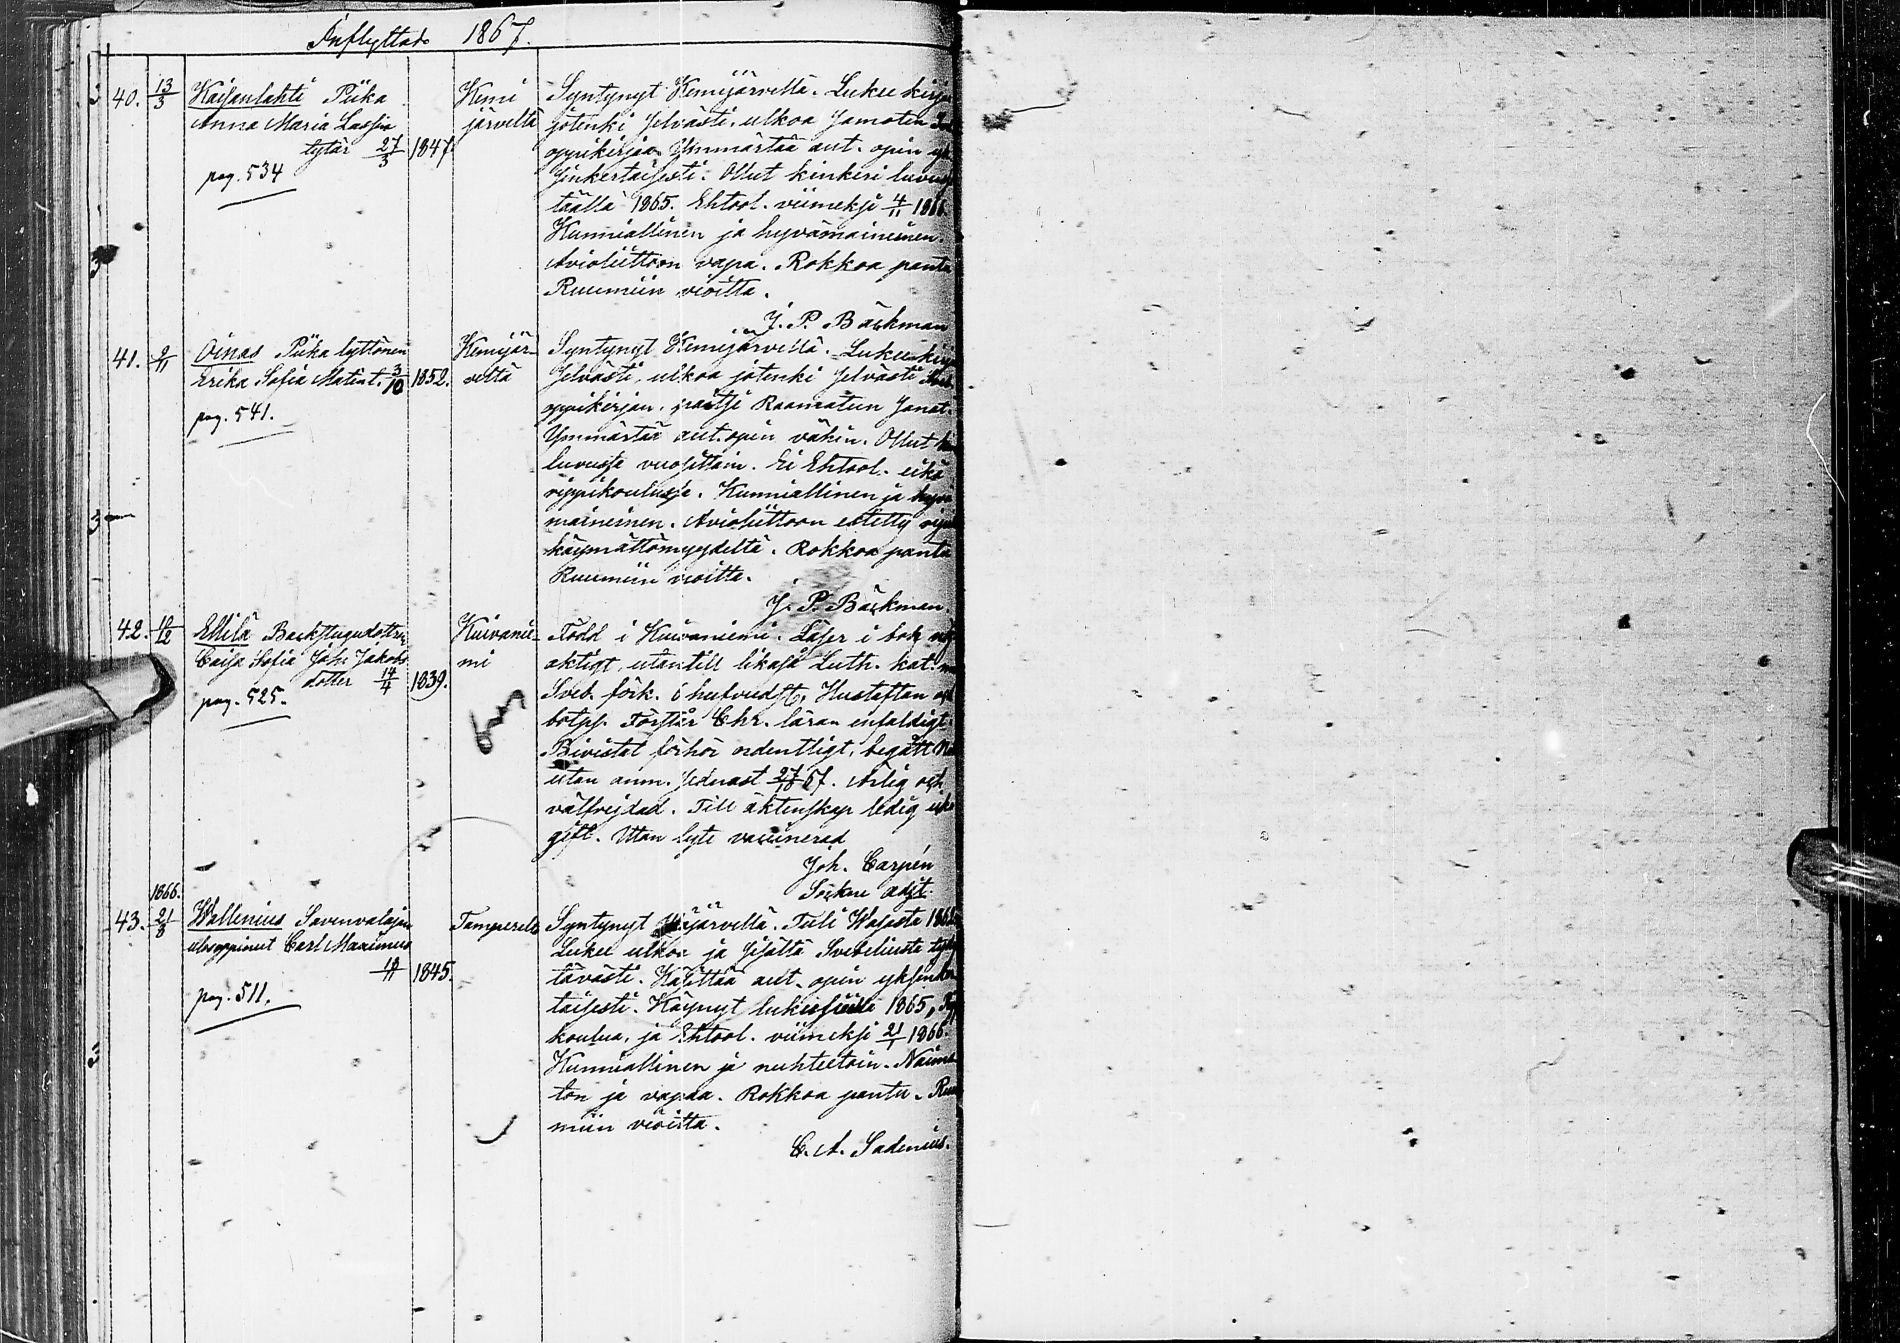 Inflyttade 1867.
40. 13/3 Kaisanlahti Piika
Anna Maria Lassin
tytär 27/3 1847.
pag. 534
Kemi
järveltä
Syntynyt Kemijärvellä. Lukee kirja
jotenki selvästi, ulkoa samoten
oppikirjan. Ymmärtää aut. opin yk
sinkertaisesti. Ollut kinkeri luvus
täällä 1865. Ehtool. viimeksi 4/11 186
Kunniallinen ja hyvämaineinen.
Avioliittoon vapa. Rokkoa pantu
Ruumiin vioitta.
J. P. Bäckman
41. 2/11 Oinas Piika tyttönen
Erika Sofia Matint. 3/10 1852.
pag. 541.
Kemijär-
veltä
Syntynyt Kemijärvellä. Lukee kirja
selvästi, ulkoa jotenki selvästi
oppikirjan, paitsi Raamatun sanat.
Ymmärtää aut. opin vähin. Ollut
luvussa vuosittain. Ei Ehtool. eikä
rippikoulussa. Kunniallinen ja hyvä
maineinen. Avioliittoon estetty
käymättömyydeltä. Rokkoa pantu
Ruumiin vioitta.
J. P. Bäckman.
42. 10/12 Ellilä Backstugudottern
Caisa Sofia Joh: Jakobs
dotter 14/4 1839.
pag. 525.
Kuivanie-
mi
Född i Kuivaniemi. Läser i bok nöj
aktigt, utantill likaså Luth. kat. m
Sveb. förk. i hufvudst. Hustaflan och
botps. Förstår Chr. läran enfaldigt.
Bivistat förhör ordentligt, begått
utan anm. sednast 27/10 67. Ärlig och
välfrejdad. Till äktenskap ledig icke
gift. Utan lyte vaccinerad
Joh. Carpén
Sockne adjt.
1866.
43. 21/8 Wallenius Savenvalajan
ulosoppinut Carl Maximus
1845.
pag. 511.
Tampereelta
Syntynyt järvellä. Tuli Wasasta 186
Lukee ulkoa ja sisältä Svebeliusta tyy
tävästi. Käsittää aut. opin yksinker
taisesti. Käynyt lukusioilla 1865,
koulua, ja Ehtool. viimeksi 21/1 1866.
Kunniallinen ja nuhteetoin. Naima
ton ja vapaa. Rokkoa pantu. Ruu
miin vioitta.
C. A. Sadenius.